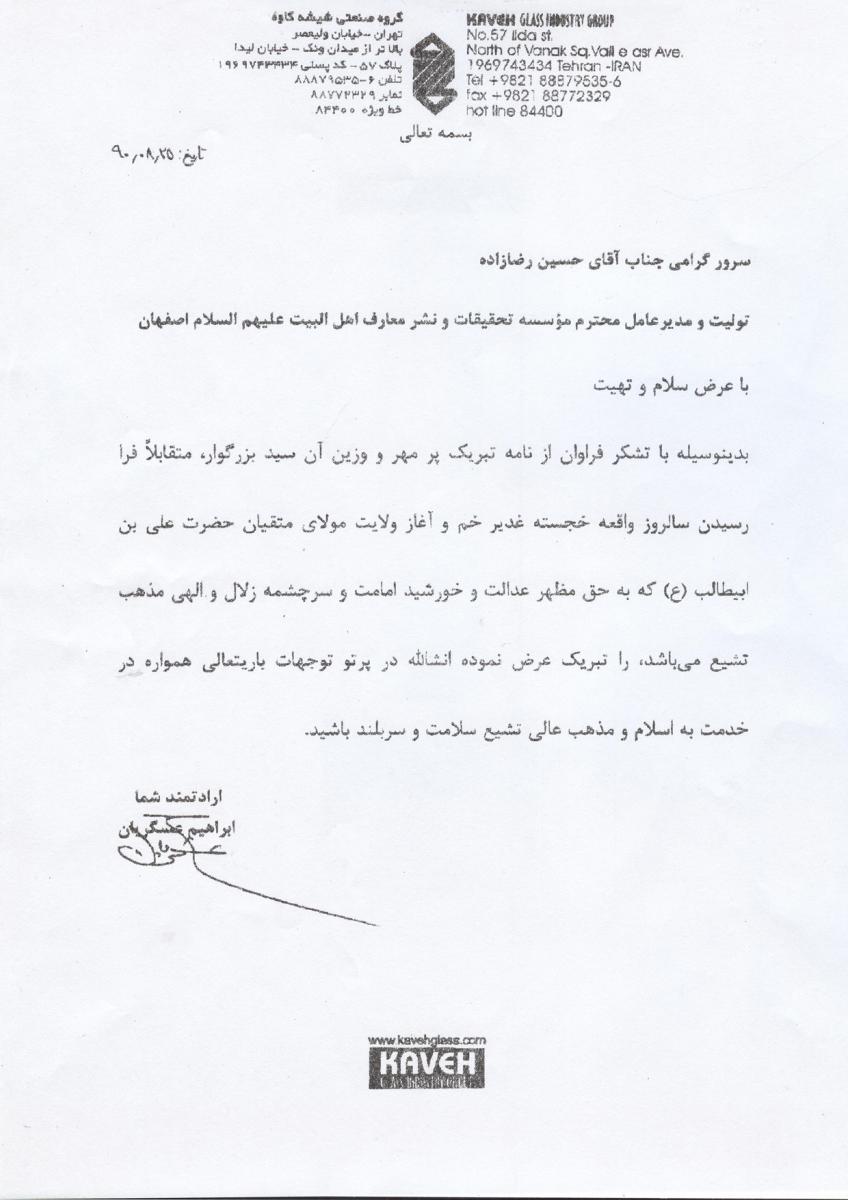 گروه صنعتی شیشه کاوه
تهران - خیابان ولیعصر
بالاتر از میدان ونک - خیابان لیدا
پلاک ۵۷ - کد پستی ۱۹۶۹۷۴۳۴۳۴
تلفن ۶-۸۸۸۷۹۵۳۵
نمابر ۸۸۷۷۲۳۲۹
خط ویژه ۸۴۴۰۰
KAVEH GLASS INDUSTRY GROUP
No.57 lida st.
North of Vanak Sq.Vali e asr Ave.
1969743434 Tehran -IRAN
Tel +9821 88879535-6
fax +9821 88772329
hot line 84400
بسمه تعالی
تاریخ: ۹۰٫۰۸٫۲۵
سرور گرامی جناب آقای حسین رضازاده
تولیت و مدیرعامل محترم مؤسسه تحقیقات و نشر معارف اهل البیت علیهم السلام اصفهان
با عرض سلام و تهیت
بدینوسیله با تشکر فراوان از نامه تبریک پر مهر و وزین آن سید بزرگوار، متقابلاً فرا
رسیدن سالروز واقعه خجسته غدیر خم و آغاز ولایت مولای متقیان حضرت علی بن
ابیطالب (ع) که به حق مظهر عدالت و خورشید امامت و سرچشمه زلال و الهی مذهب
تشیع می‌باشد، را تبریک عرض نموده انشالله در پرتو توجهات باریتعالی همواره در
خدمت به اسلام و مذهب عالی تشیع سلامت و سربلند باشید.
ارادتمند شما
ابراهیم عسگریان
www.kavehglass.com
KAVEH
GLASS INDUSTRY GROUP